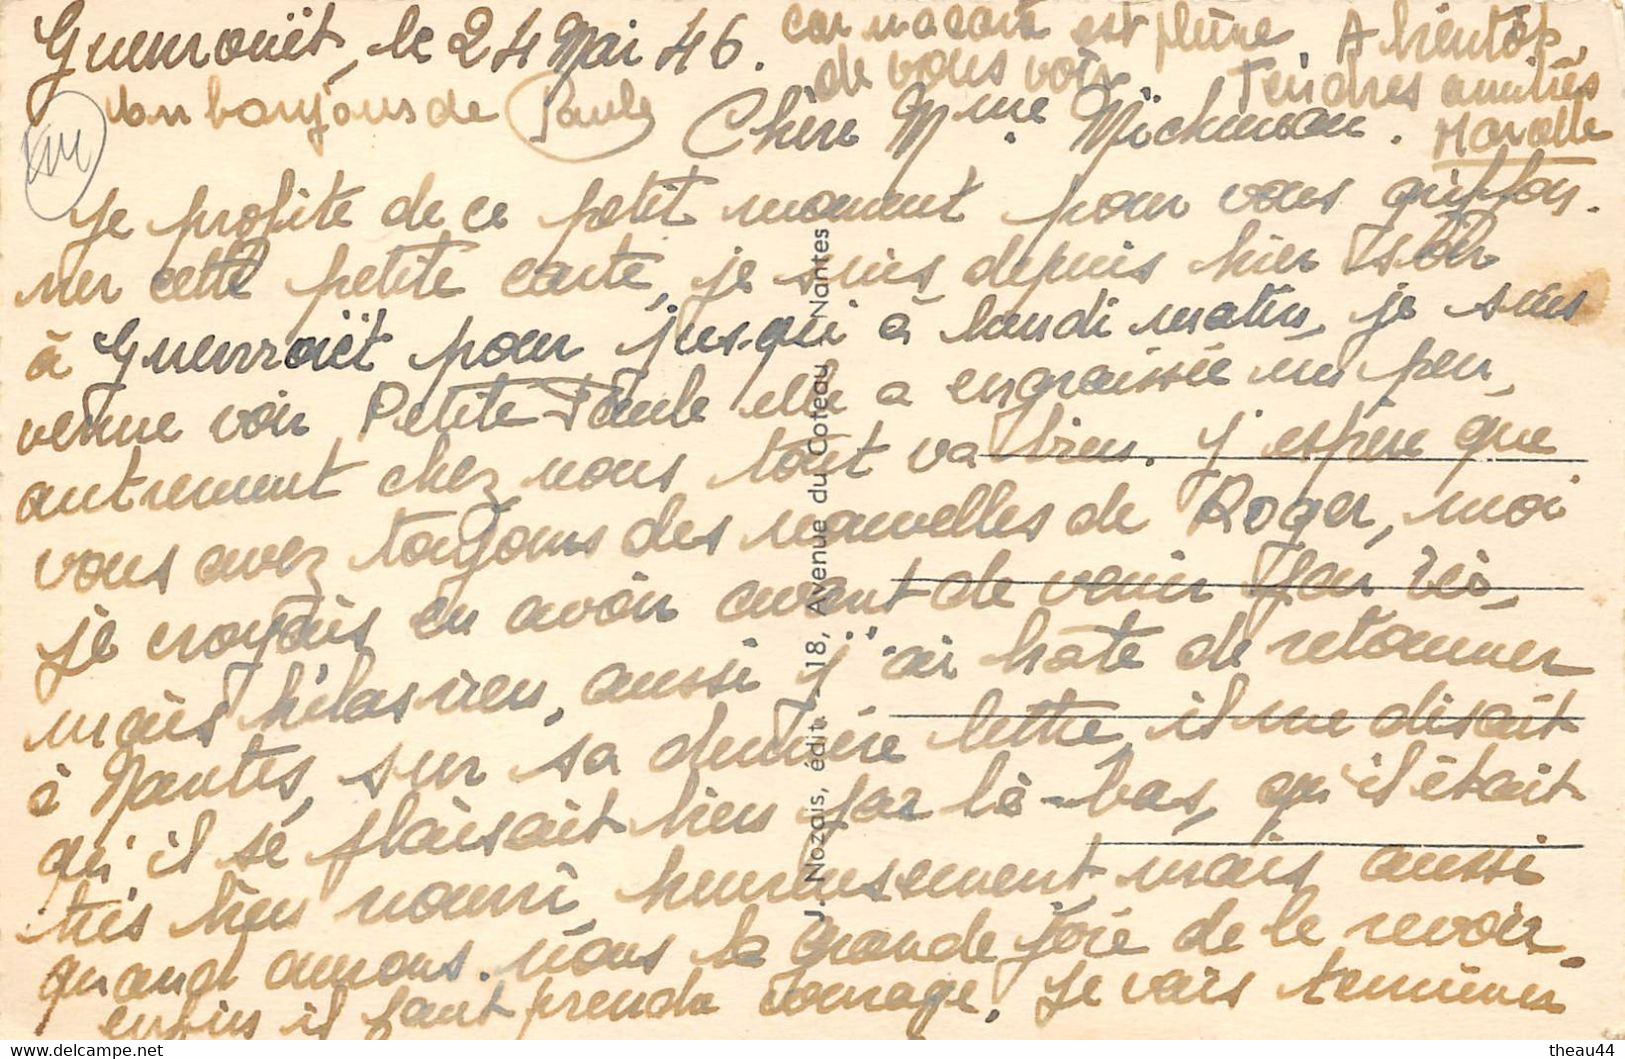 Guenrouët, le 24 Mai 46.
Chère Mme
Je profite de ce petit moment pour vous griffon-
ner cette petite carte, je suis depuis hier soir
à Guenrouët pour jusqui à lundi matin, je suis
venue voir Petite Paule elle a engraissée un peu,
autrement chez nous tout va bien. J'espère que
vous avez toujours des nouvelles de Roger, moi
je croyais en avoir avant de venir par ici,
mais hélas rien, aussi j'ai hate de retourner
à Nantes, sur sa dernière lettre, il me disait
qu'il se plaisait bien par là-bas, qu'il était
très bien nourri, heureusement, mais aussi
quand aurons-nous la grande joie de le revoir.
enfin il faut prendre courage. Je vais terminer
car ma carte est pleine. A bientôt
de vous voir. Tendres amitiés
Marcelle
bonjours de Paule
J. Nozais, édit. - 18, Avenue du Coteau, Nantes
delcampe.net
theau44